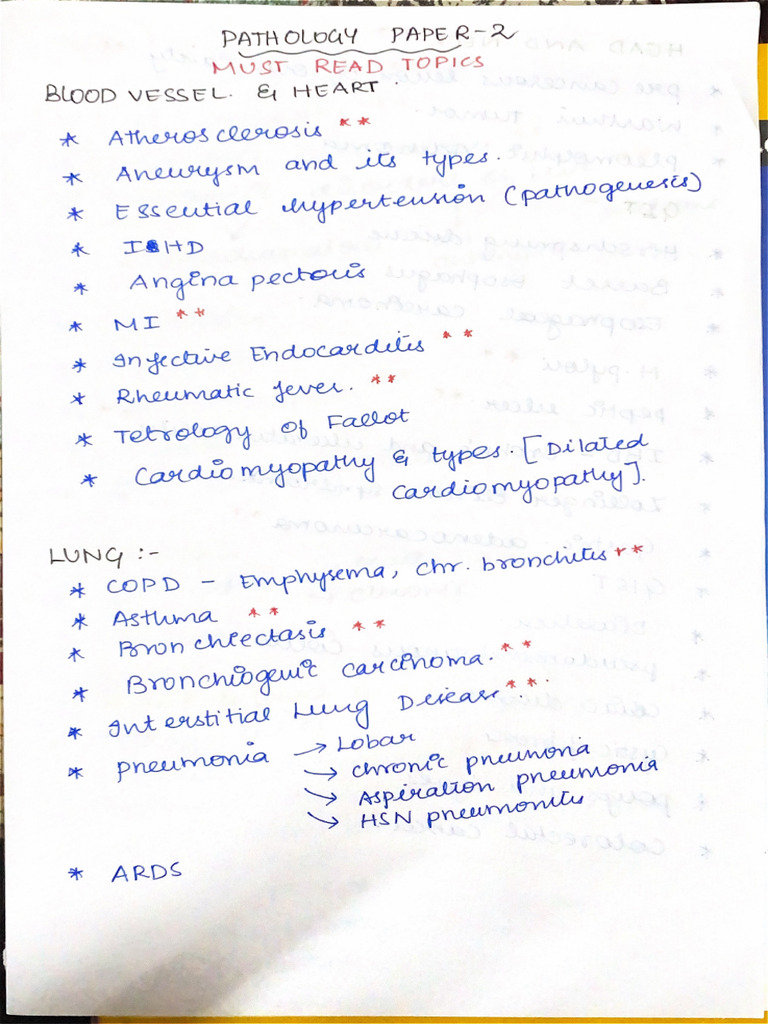 PATHOLOGY PAPER-2
MUST READ TOPICS
BLOOD VESSEL. & HEART.
* Atherosclerosis **
* Aneurysm and its types.
* Essential hypertension (pathogenesis)
* IHD
* Angina pectoris
* MI **
* Infective Endocarditis **
* Rheumatic fever. **
* Tetrology of Fallot
* Cardiomyopathy & types. [Dilated
cardiomyopathy].
LUNG :-
* COPD – Emphysema, chr. bronchitis **
* Asthma **
* Bronchiectasis **
* Bronchiogenic carcinoma. **
* Interstitial Lung Disease **
* pneumonia → Lobar
→ chronic pneumonia
→ Aspiration pneumonia
→ HSN pneumonitis
* ARDS